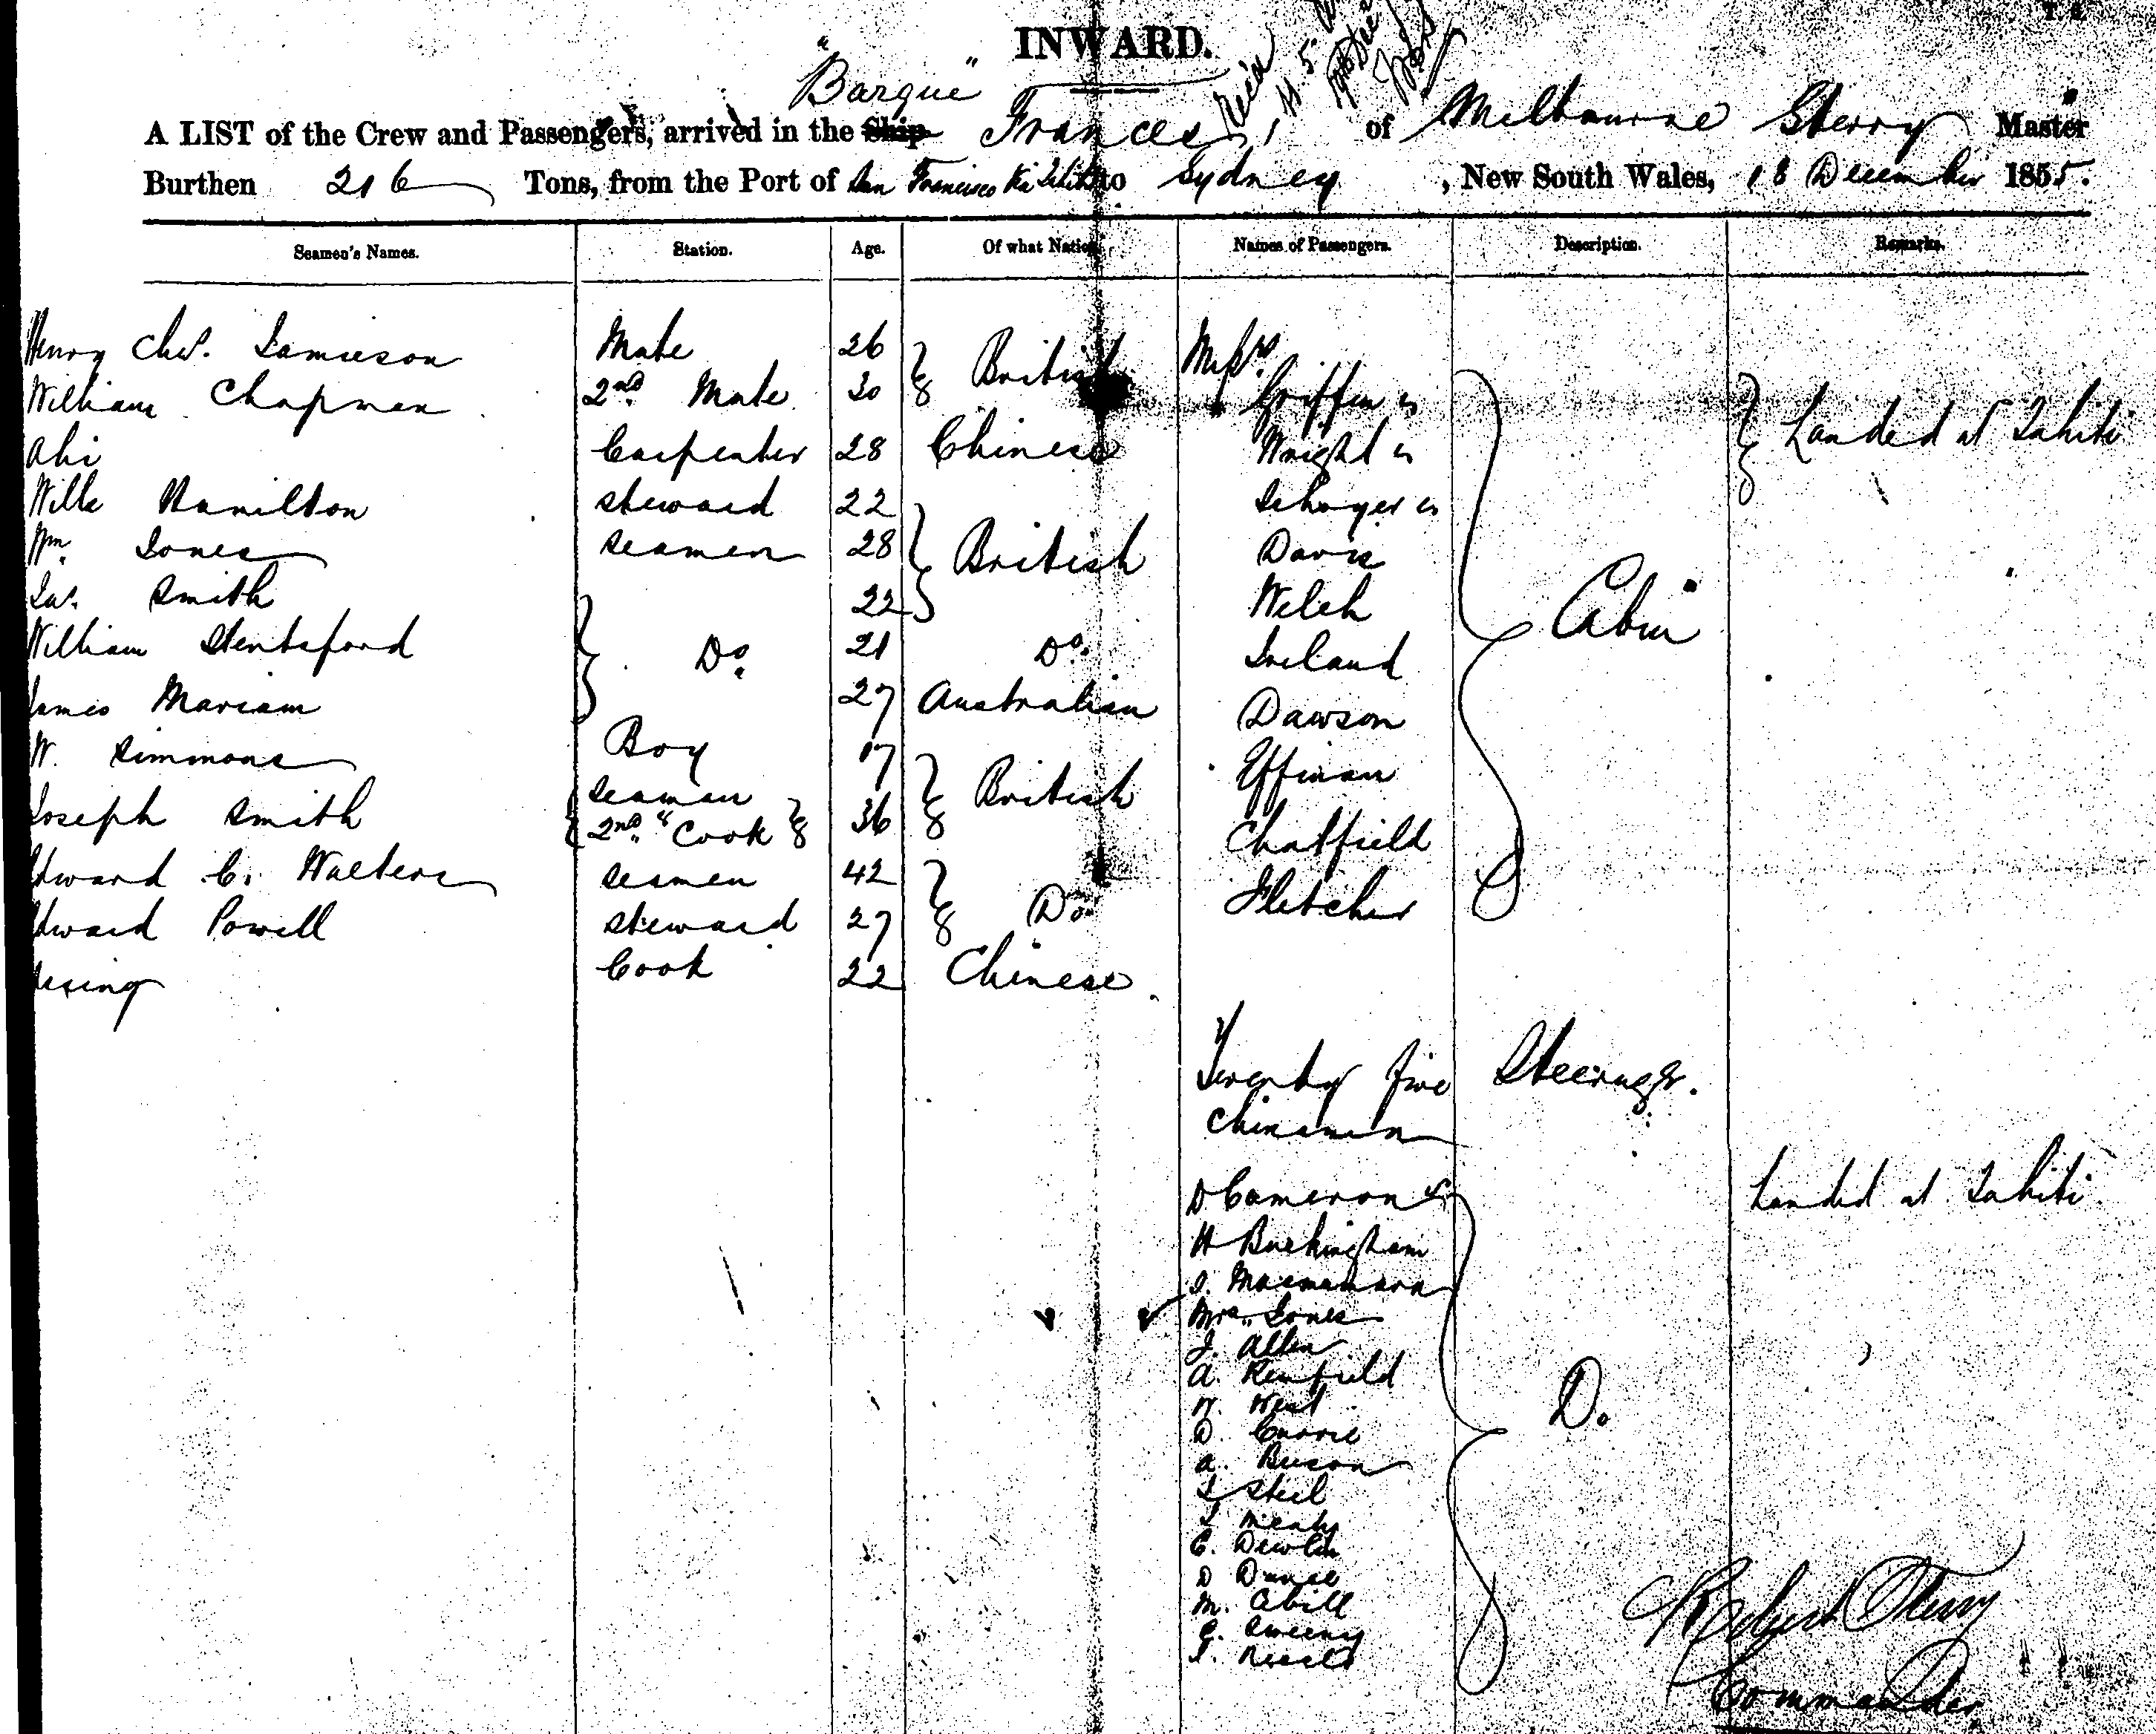 INWARD.
"Barque"
A LIST of the Crew and Passengers, arrived in the Ship Frances, of Melbourne Sterry Master
Burthen 216 Tons, from the Port of San Francisco via Tahiti to Sydney, New South Wales, 18 December 1855.
Seamen's Names. Station. Age. Of what Nation. Names of Passengers. Description. Remarks.
Henry Chs. Jamieson Mate 26 British Messrs.
William Chapman 2nd Mate 30 Griffin
Ahi Carpenter 28 Chinese Wright Landed at Tahiti
Hamilton Steward 22 Schoyer
Wm. Jones Seamen 28 British Davis
Jas. Smith 22 Welch Cabin
William Stentaford Do. 21 Do. Ireland
James Mariam 27 Australian Dawson
W. Simmons Boy 17 British Effinan
Joseph Smith Seaman 2nd "Cook 36 Chatfield
Edward C. Walters Seamen 42 Do. Fletcher
Edward Powell Steward 27
Cook 22 Chinese
Twenty five Steerage.
Chinamen
D Cameron Landed at Tahiti
H Buckingham
J. Macnamara
Mrs. Jones
J. Allen
A. Renfield
W. West Do
D. Currie
A.
J Steel
J
C. Dewlin
D
M. Cahill
C. Sweeny
J.
Robert Sterry
Commander